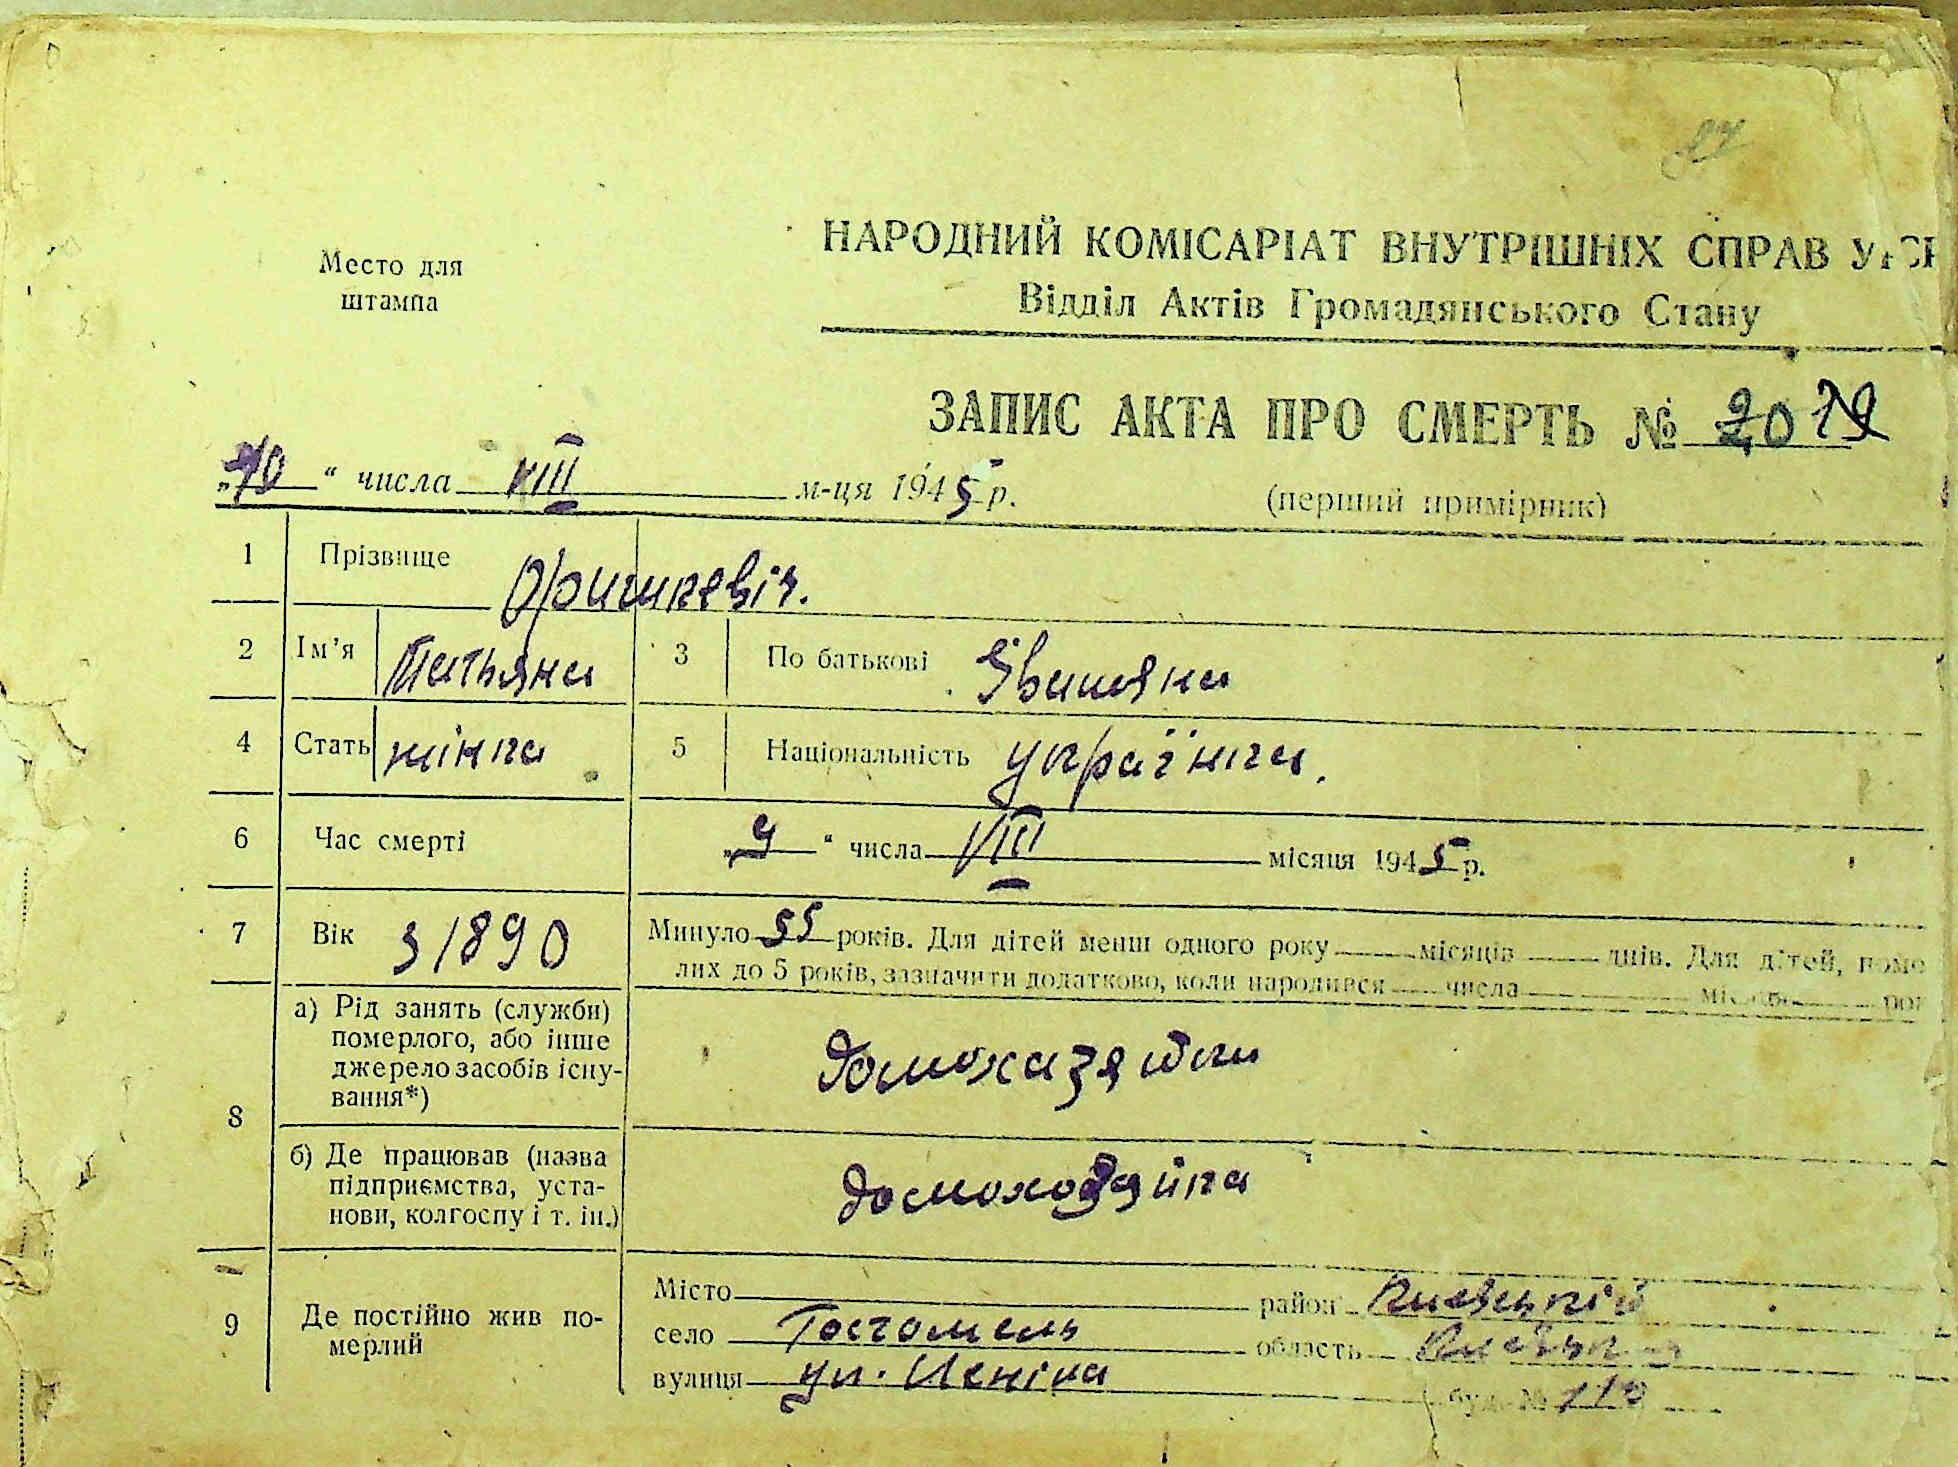 87
Место для
штампа
НАРОДНИЙ КОМІСАРІАТ ВНУТРІШНІХ СПРАВ УРСР
Відділ Актів Громадянського Стану
ЗАПИС АКТА ПРО СМЕРТЬ №
„10“ числа VIII м-ця 1945 р. (перший примірник)
1 Прізвище Оришкевіч.
2 Ім’я Татьяна 3 По батькові
4 Стать жінка 5 Національність українка.
6 Час смерті „9“ числа VIII місяця 1945 р.
7 Вік з 1890 Минуло 55 років. Для дітей менш одного року місяців днів. Для дітей, поме
лих до 5 років, зазначити додатково, коли народився числа місяця рок
8 а) Рід занять (служби) померлого, або інше джерело засобів існування*) домохазяйка
б) Де працював (назва підприємства, установи, колгоспу і т. ін.) домохозяйка
9 Де постійно жив померлий
Місто район Київський
село Гостомель область Київська
вулиця ул. Леніна буд. №